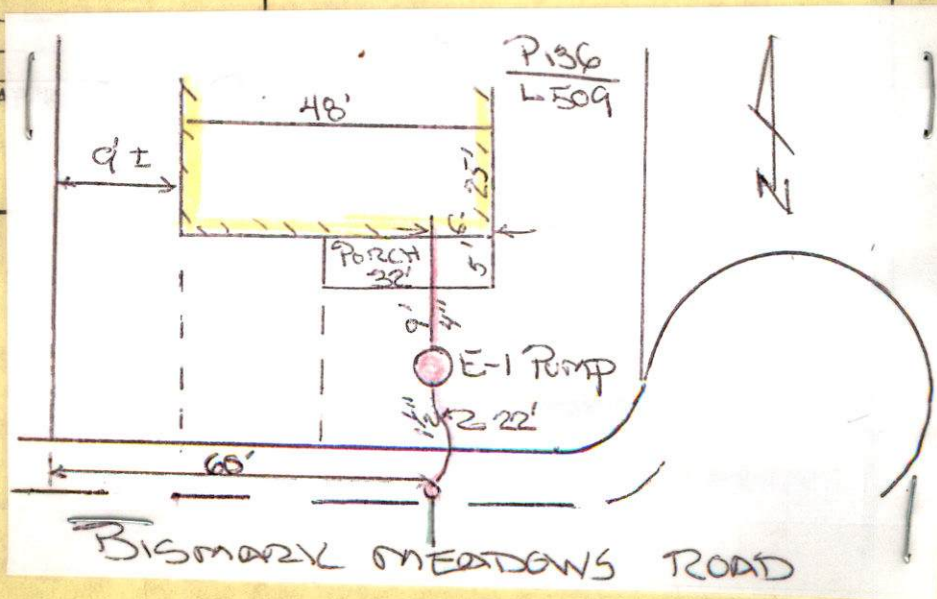 P.136
L 509
48'
9' ±
25'
6'
PORCH
32'
5'
9' 4"
E-1 PUMP
22'
60'
N
BISMARK MEADOWS ROAD